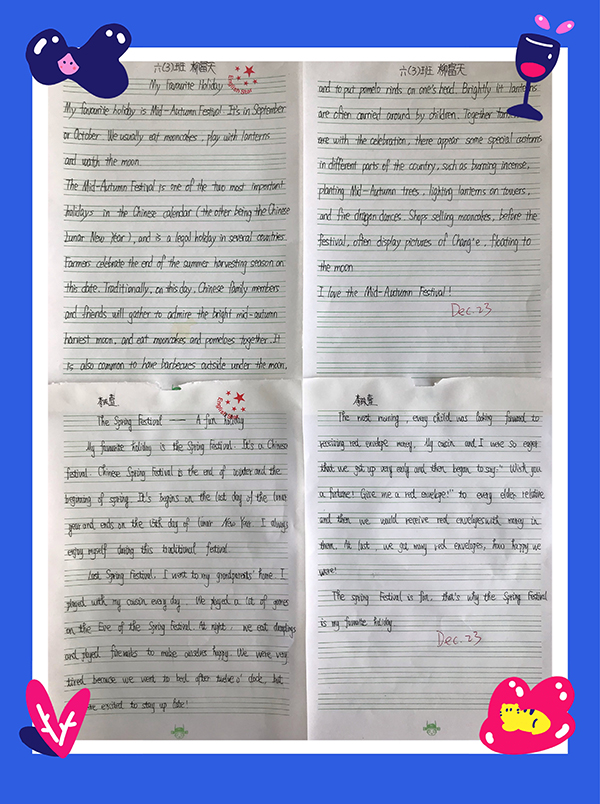 六(3)班 柳富天
My Favourite Holiday
My favourite holiday is Mid-Autumn Festival. It's in September
or October. We usually eat mooncakes, play with lanterns
and watch the moon.
The Mid-Autumn Festival is one of the two most important
holidays in the Chinese calendar (the other being the Chinese
Lunar New Year), and is a legal holiday in several countries.
Farmers celebrate the end of the summer harvesting season on
this date. Traditionally, on this day, Chinese family members
and friends will gather to admire the bright mid-autumn
harvest moon, and eat mooncakes and pomeloes together. It
is also common to have barbecues outside under the moon,
六(3)班 柳富天
and to put pomelo rinds on one's head. Brightly lit lanterns
are often carried around by children. Together
are with the celebration, there appear some special customs
in different parts of the country, such as burning incense,
planting Mid-Autumn trees, lighting lanterns on towers,
and fire dragon dances. Shops selling mooncakes, before the
festival, often display pictures of Chang'e, floating to
the moon.
I love the Mid-Autumn Festival!
Dec.23
The Spring Festival —— A fun holiday
My favourite holiday is the Spring Festival. It's a Chinese
festival. Chinese Spring Festival is the end of winter and the
beginning of spring. It's begins on the last day of the lunar
year and ends on the 15th day of lunar New Year. I always
enjoy myself during this traditional festival.
Last Spring Festival, I went to my grandparents' home. I
played with my cousin every day. We played a lot of games
on the Eve of the Spring Festival. At night, we eat dumplings
and played fireworks to make ourselves happy. We were very
tired because we went to bed after twelve o' clock, but
excited to stay up late!
The next morning, every child was looking forward to
receiving red envelope money. My cousin and I were so eager
that we got up very early and then began to say: "Wish you
a fortune! Give me a red envelope!" to every elder relative
and then we would receive red envelopes with money in
them. At last, we got many red envelopes, how happy we
were!
The spring Festival is fun, that's why the Spring Festival
is my favorite holiday.
Dec.23